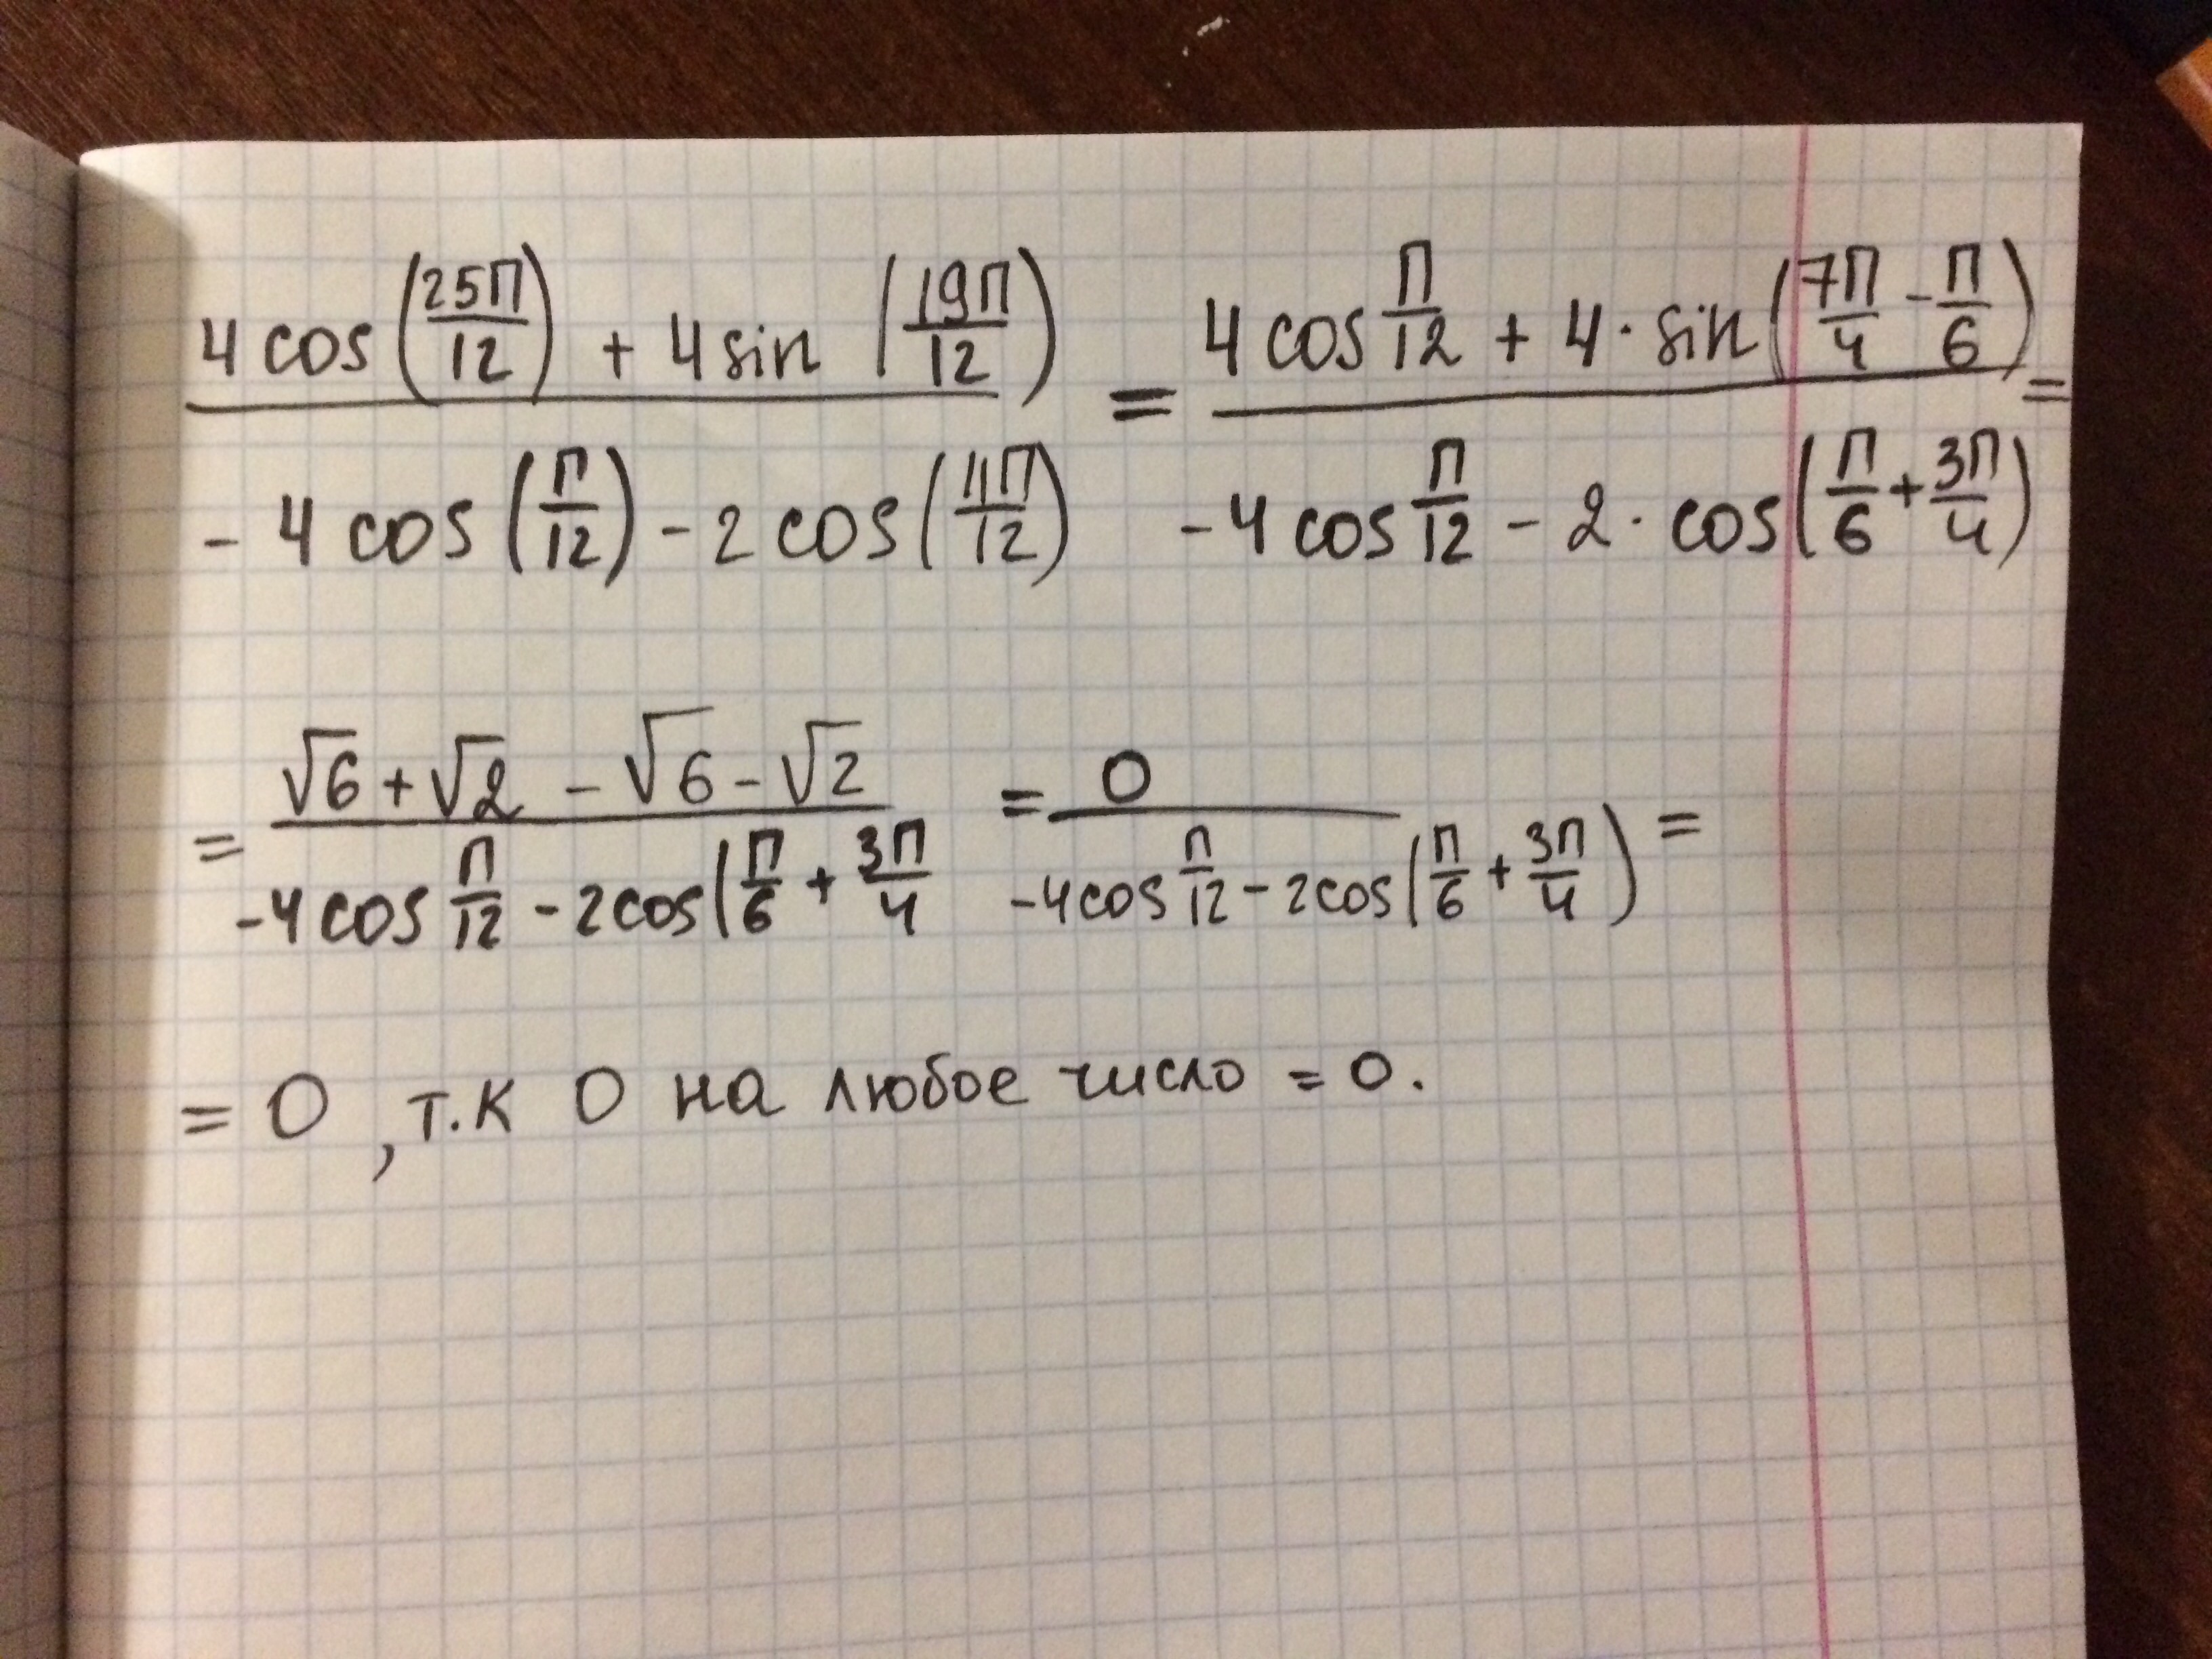 (4cos(25π/12) + 4sin(19π/12)) / (-4cos(π/12) - 2cos(11π/12)) = (4cos π/12 + 4·sin(7π/4 - π/6)) / (-4cos π/12 - 2·cos(π/6 + 3π/4)) =
= (√6 + √2 - √6 - √2) / (-4cos π/12 - 2cos(π/6 + 3π/4) = 0 / (-4cos π/12 - 2cos(π/6 + 3π/4)) =
= 0, т.к 0 на любое число = 0.